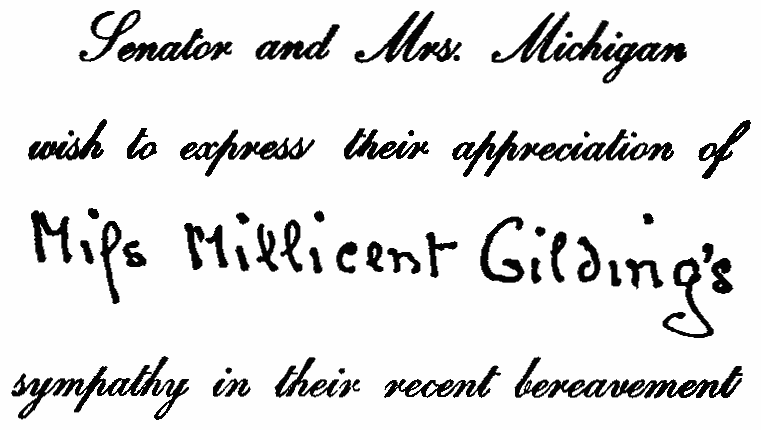 Senator and Mrs. Michigan
wish to express their appreciation of
Miſs Millicent Gilding's
sympathy in their recent bereavement